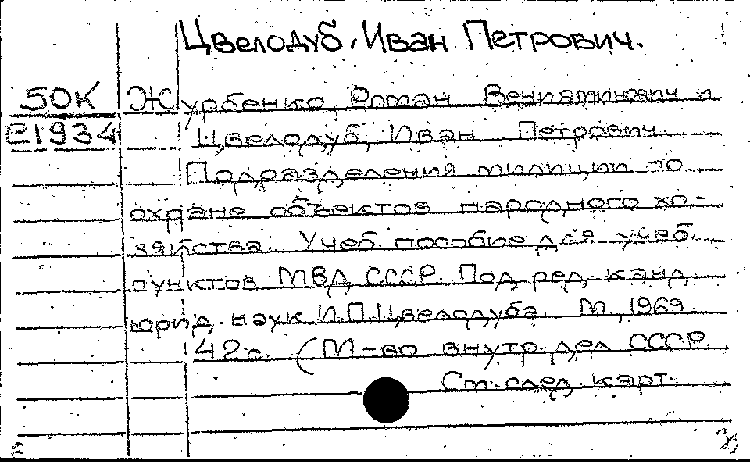 Цвелодуб, Иван Петрович.
50К Журбенко, Роман Вениаминович и
е1934 Цвелодуб, Иван Петрович.
Подразделения милиции по
охране объектов народного хо-
зяйства. Учеб. пособие для учеб.
пунктов МВД СССР. Под ред. канд.
юрид. наук И.П.Цвелодуба. М., 1969.
42с. (М-во внутр. дел СССР.
См. след. карт.